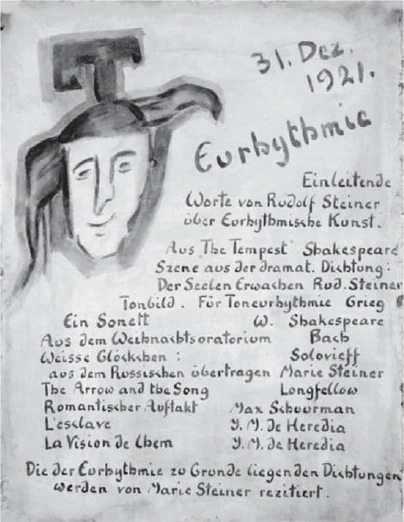 31. Dez.
1921.
Eurhythmie
Einleitende
Worte von Rudolf Steiner
über Eurhythmische Kunst.
Aus "The Tempest" Shakespeare
Szene aus der dramat. Dichtung:
Der Seelen Erwachen Rud. Steiner
Tonbild. Für Toneurhythmie Grieg
Ein Sonett W. Shakespeare
Aus dem Weihnachtsoratorium Bach
Weisse Glöckchen: Solovieff
aus dem Russischen übertragen Marie Steiner
The Arrow and the Song Longfellow
Romantischer Auftakt Max Schuurman
L'esclave J. M. de Heredia
La Vision de Chem J. M. de Heredia
Die der Eurhythmie zu Grunde liegenden Dichtungen
werden von Marie Steiner rezitiert.